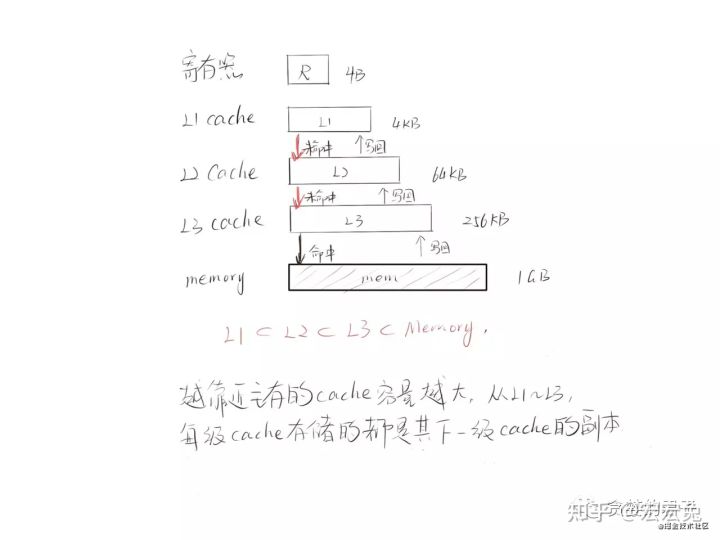 寄存器 R 4B
L1 cache L1 4KB
未命中 ↑写回
L2 Cache L2 64KB
未命中 ↑写回
L3 cache L3 256KB
命中 ↑写回
memory mem 1GB
L1 ⊂ L2 ⊂ L3 ⊂ Memory.
越靠近主存的cache容量越大,从L1~L3,
每级cache存储的都是其下一级cache的副本
知乎 @宏宏兔
@掘金技术社区